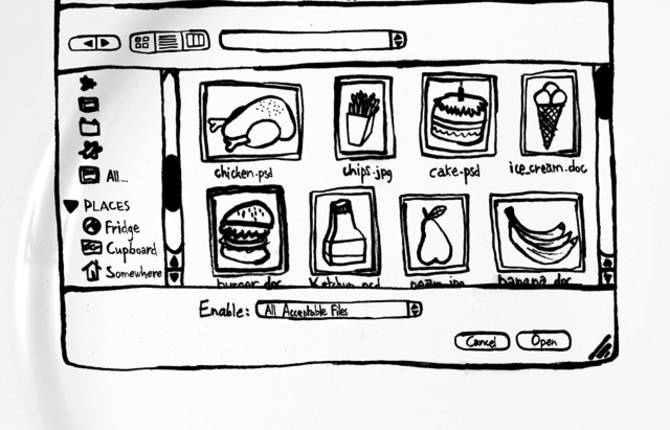 All...
PLACES
Fridge
Cupboard
Somewhere
chicken.psd
chips.jpg
cake.psd
ice_cream.doc
burger.doc
Ketchup.psd
pear.jpg
banana.doc
Enable: All Acceptable Files
Cancel
Open